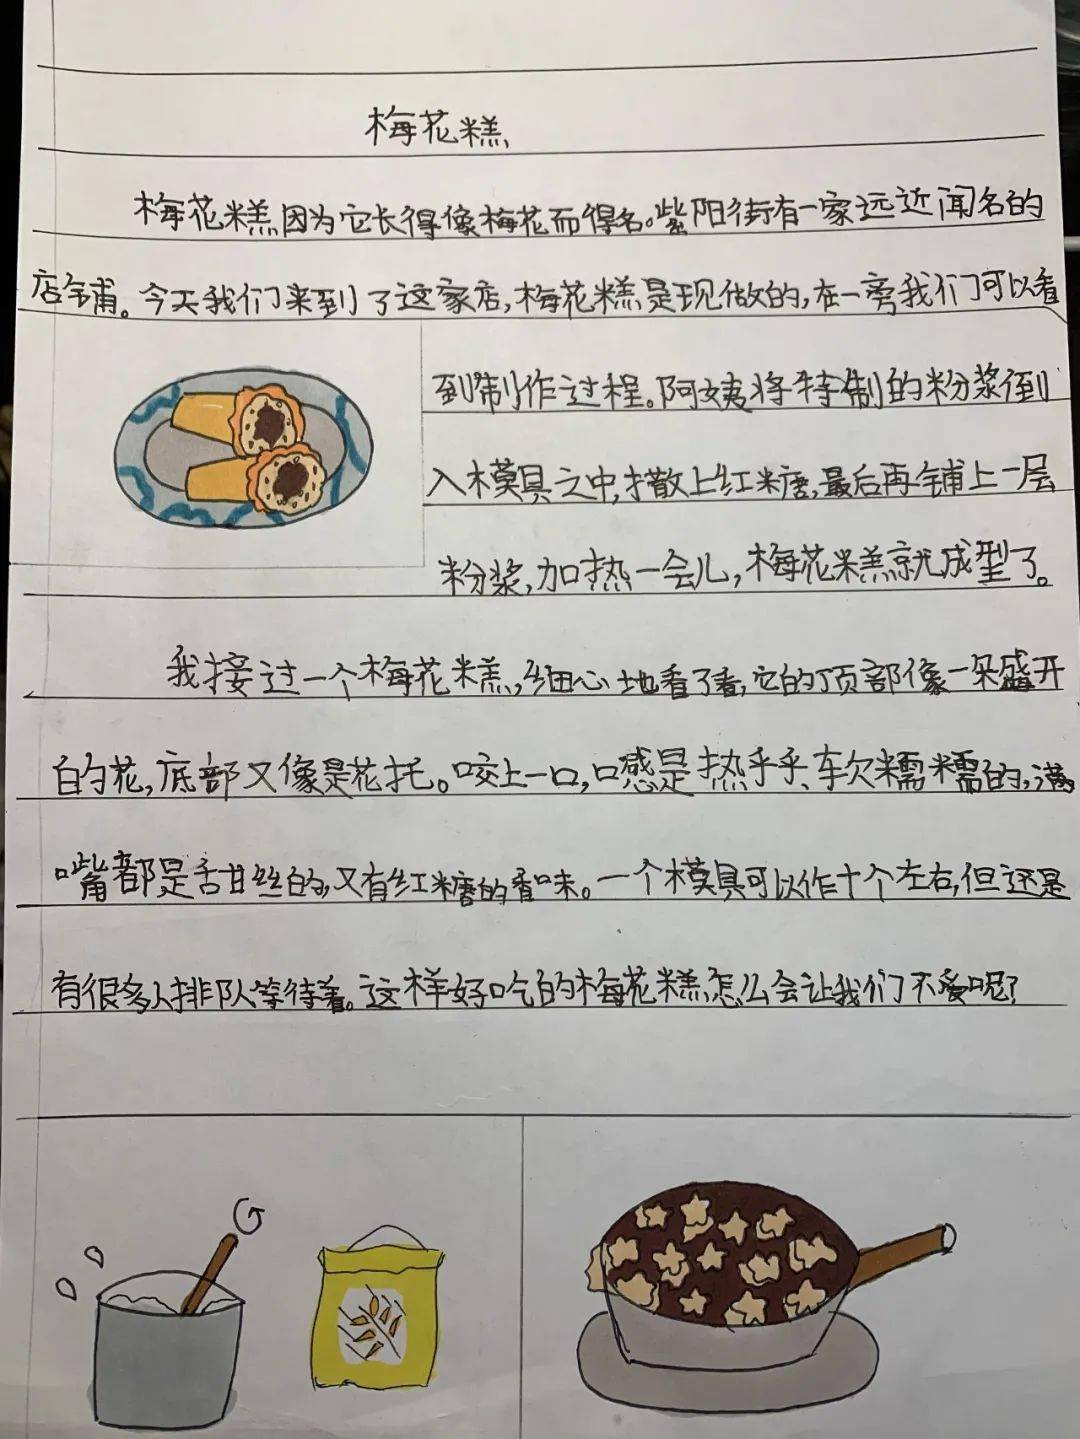 梅花糕
梅花糕因为它长得像梅花而得名。紫阳街有一家远近闻名的
店铺。今天我们来到了这家店,梅花糕是现做的,在一旁我们可以看
到制作过程。阿姨将特制的粉浆倒
入模具之中,撒上红糖,最后再铺上一层
粉浆,加热一会儿,梅花糕就成型了。
我接过一个梅花糕,细心地看了看,它的顶部像一朵盛开
的花,底部又像是花托。咬上一口,口感是热乎乎、软糯糯的,满
嘴都是舌甘丝的,又有红糖的香味。一个模具可以作十个左右,但还是
有很多人排队等待着。这样好吃的梅花糕怎么会让我们不爱呢?